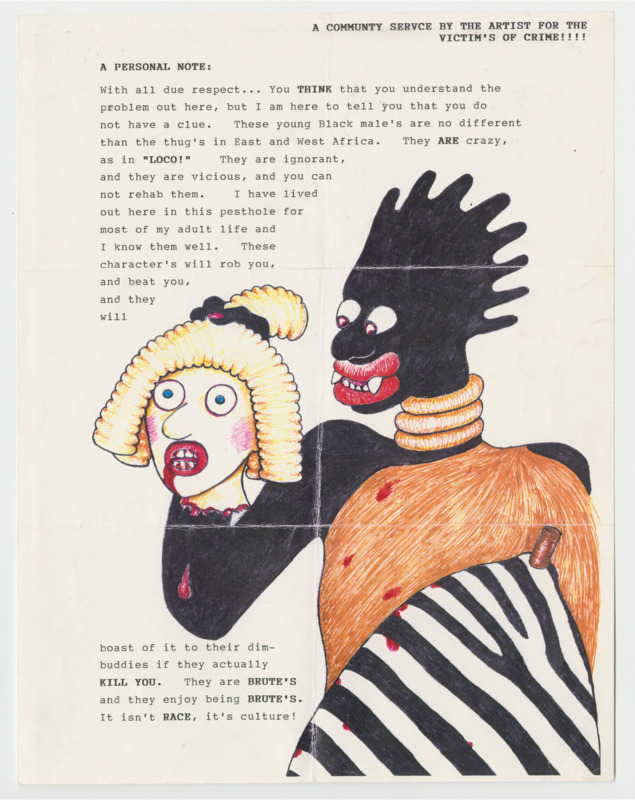 A COMMUNTY SERVCE BY THE ARTIST FOR THE
VICTIM'S OF CRIME!!!!
A PERSONAL NOTE:
With all due respect... You THINK that you understand the
problem out here, but I am here to tell you that you do
not have a clue. These young Black male's are no different
than the thug's in East and West Africa. They ARE crazy,
as in "LOCO!" They are ignorant,
and they are vicious, and you can
not rehab them. I have lived
out here in this pesthole for
most of my adult life and
I know them well. These
character's will rob you,
and beat you,
and they
will
boast of it to their dim-
buddies if they actually
KILL YOU. They are BRUTE'S
and they enjoy being BRUTE'S.
It isn't RACE, it's culture!